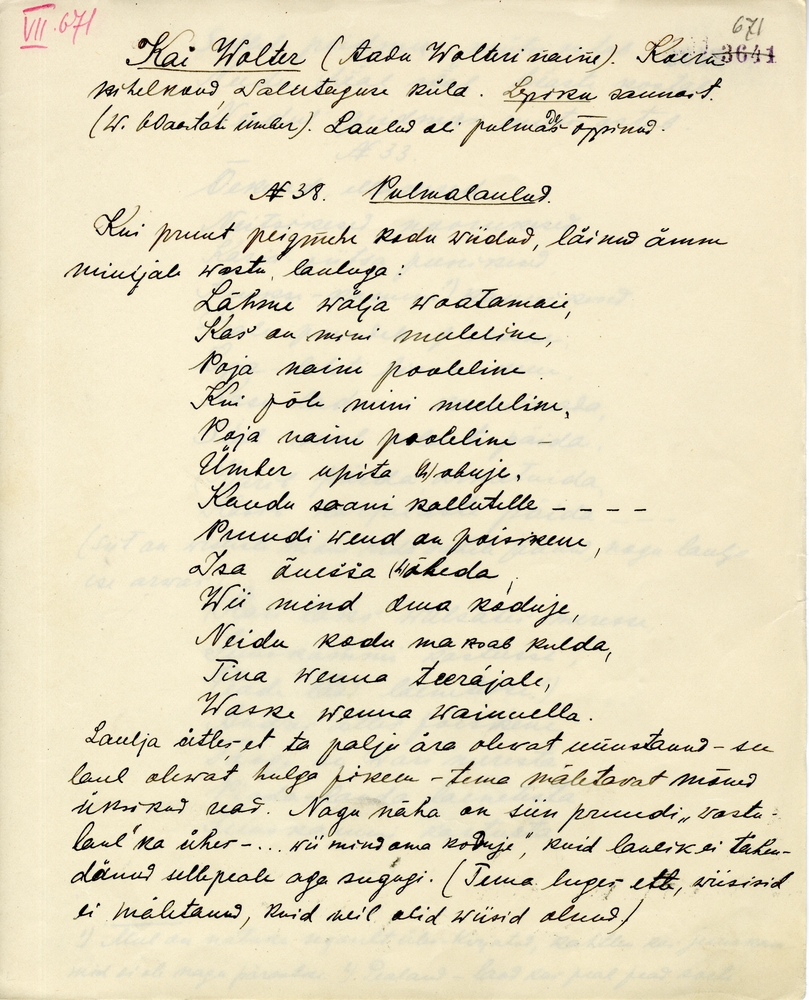 VII.671
671
3641
Kai Wolter (Aadu Wolteri naine). Koeru
kihelkond, Salutaguse küla. Lepiku saunast.
(W. 60 aastat ümber). Laulud oli pulmades õppinud.
№ 38. Pulmalaulud.
Kui pruut peigmehe kodu wiidud, läinud ämm
minijale wastu, lauluga:
Lähme wälja waatamaie,
Kas on mini meeleline,
Poja naine pooleline
Kui põle mini meeleline,
Poja naine pooleline –
Ümber upita (h)obuje,
Kaudu saani kallutelle – – – –
Pruudi wend on poisikene,
Isa õuessa (h)õbeda,
Wii mind oma koduje,
Neidu kodu maksab kulda,
Tina wenna teerajale,
Waske wenna wainuella.
Laulja ütles, et ta palju ära olewat unustanud – see
laul olewat hulga pikem – tema mäletavat mõned
üksikud read. Nagu näha on siin pruudi „wastu-
laul" ka ühes – ... wii mind oma koduje", kuid laulik ei tähen-
dänud selle peale aga sugugi. (Tema luges ette, wiisisid
ei mäletanud, kuid neil olid wiisid olnud)